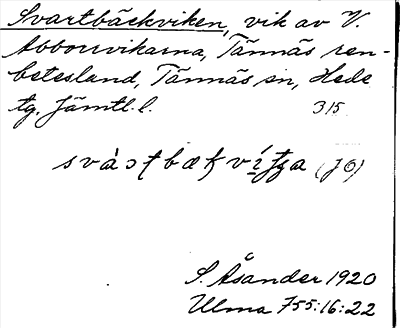 Svartbäckviken, vik av V.
Abborrvikarna, Tännäs ren-
betesland, Tännäs sn, Hede
tg, Jämtl. l. 315
(jo)
S. Åsander 1920
Ulma 755:16:22